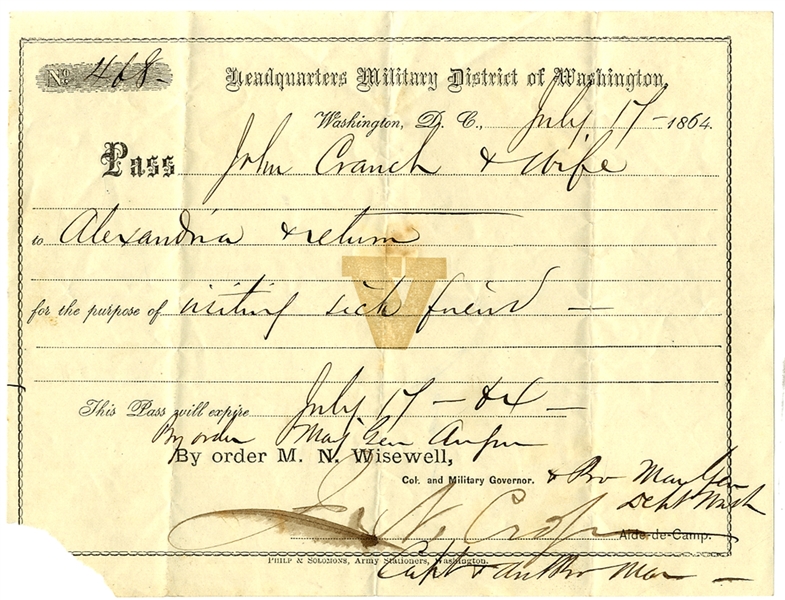 No. 468.
Headquarters Military District of Washington,
Washington, D. C., July 17 - 1864.
Pass John Cranch & Wife
to Alexandria & return
V
for the purpose of visiting sick friend —
This Pass will expire July 17 - 64 -
By order Maj Gen Augur
By order M. N. Wisewell,
Col. and Military Governor. & Pro Mar Gen
Dept Wash
N.
Aide-de-Camp.
Philp & Solomons, Army Stationers, Washington.
Capt & Pro Mar —